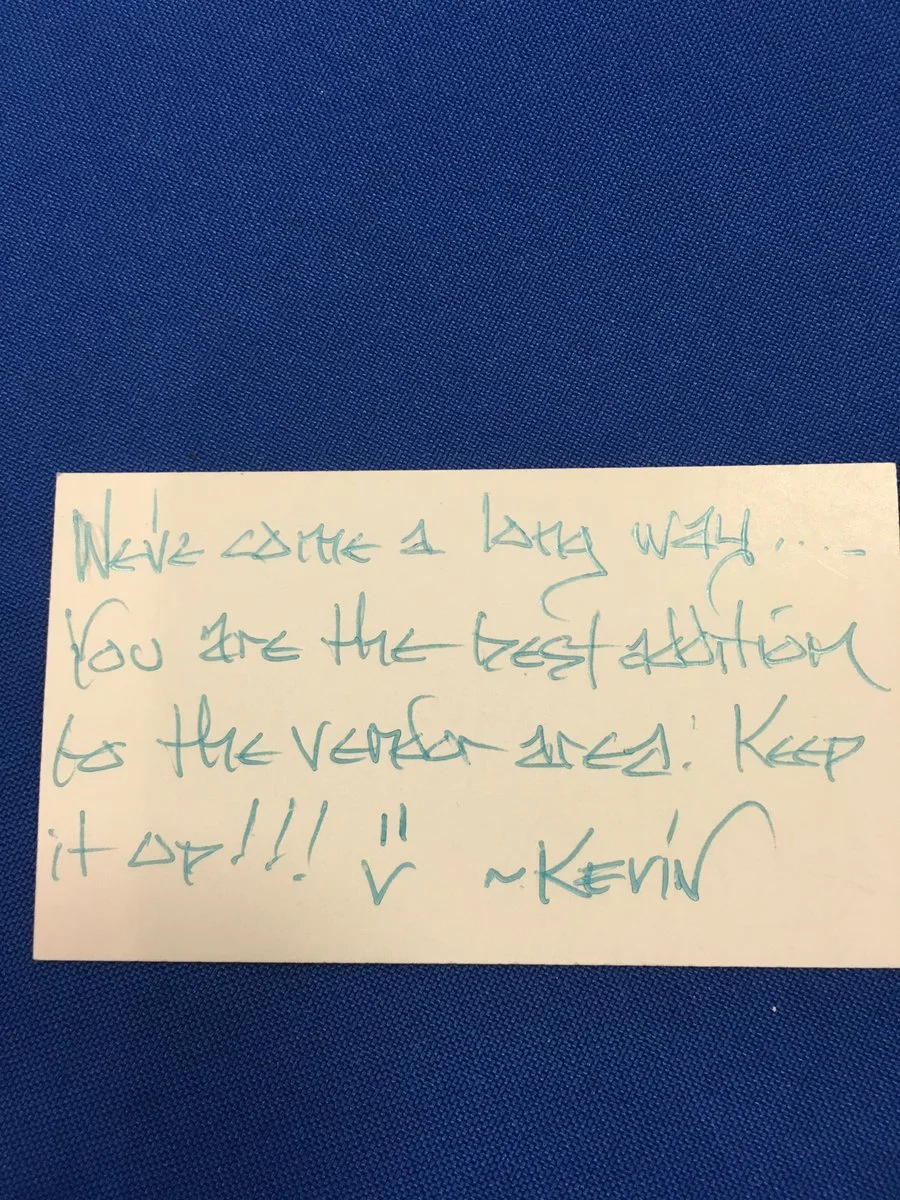 We've come a long way....
You are the best addition
to the vendor area! Keep
it up!!! "v
~Kevin